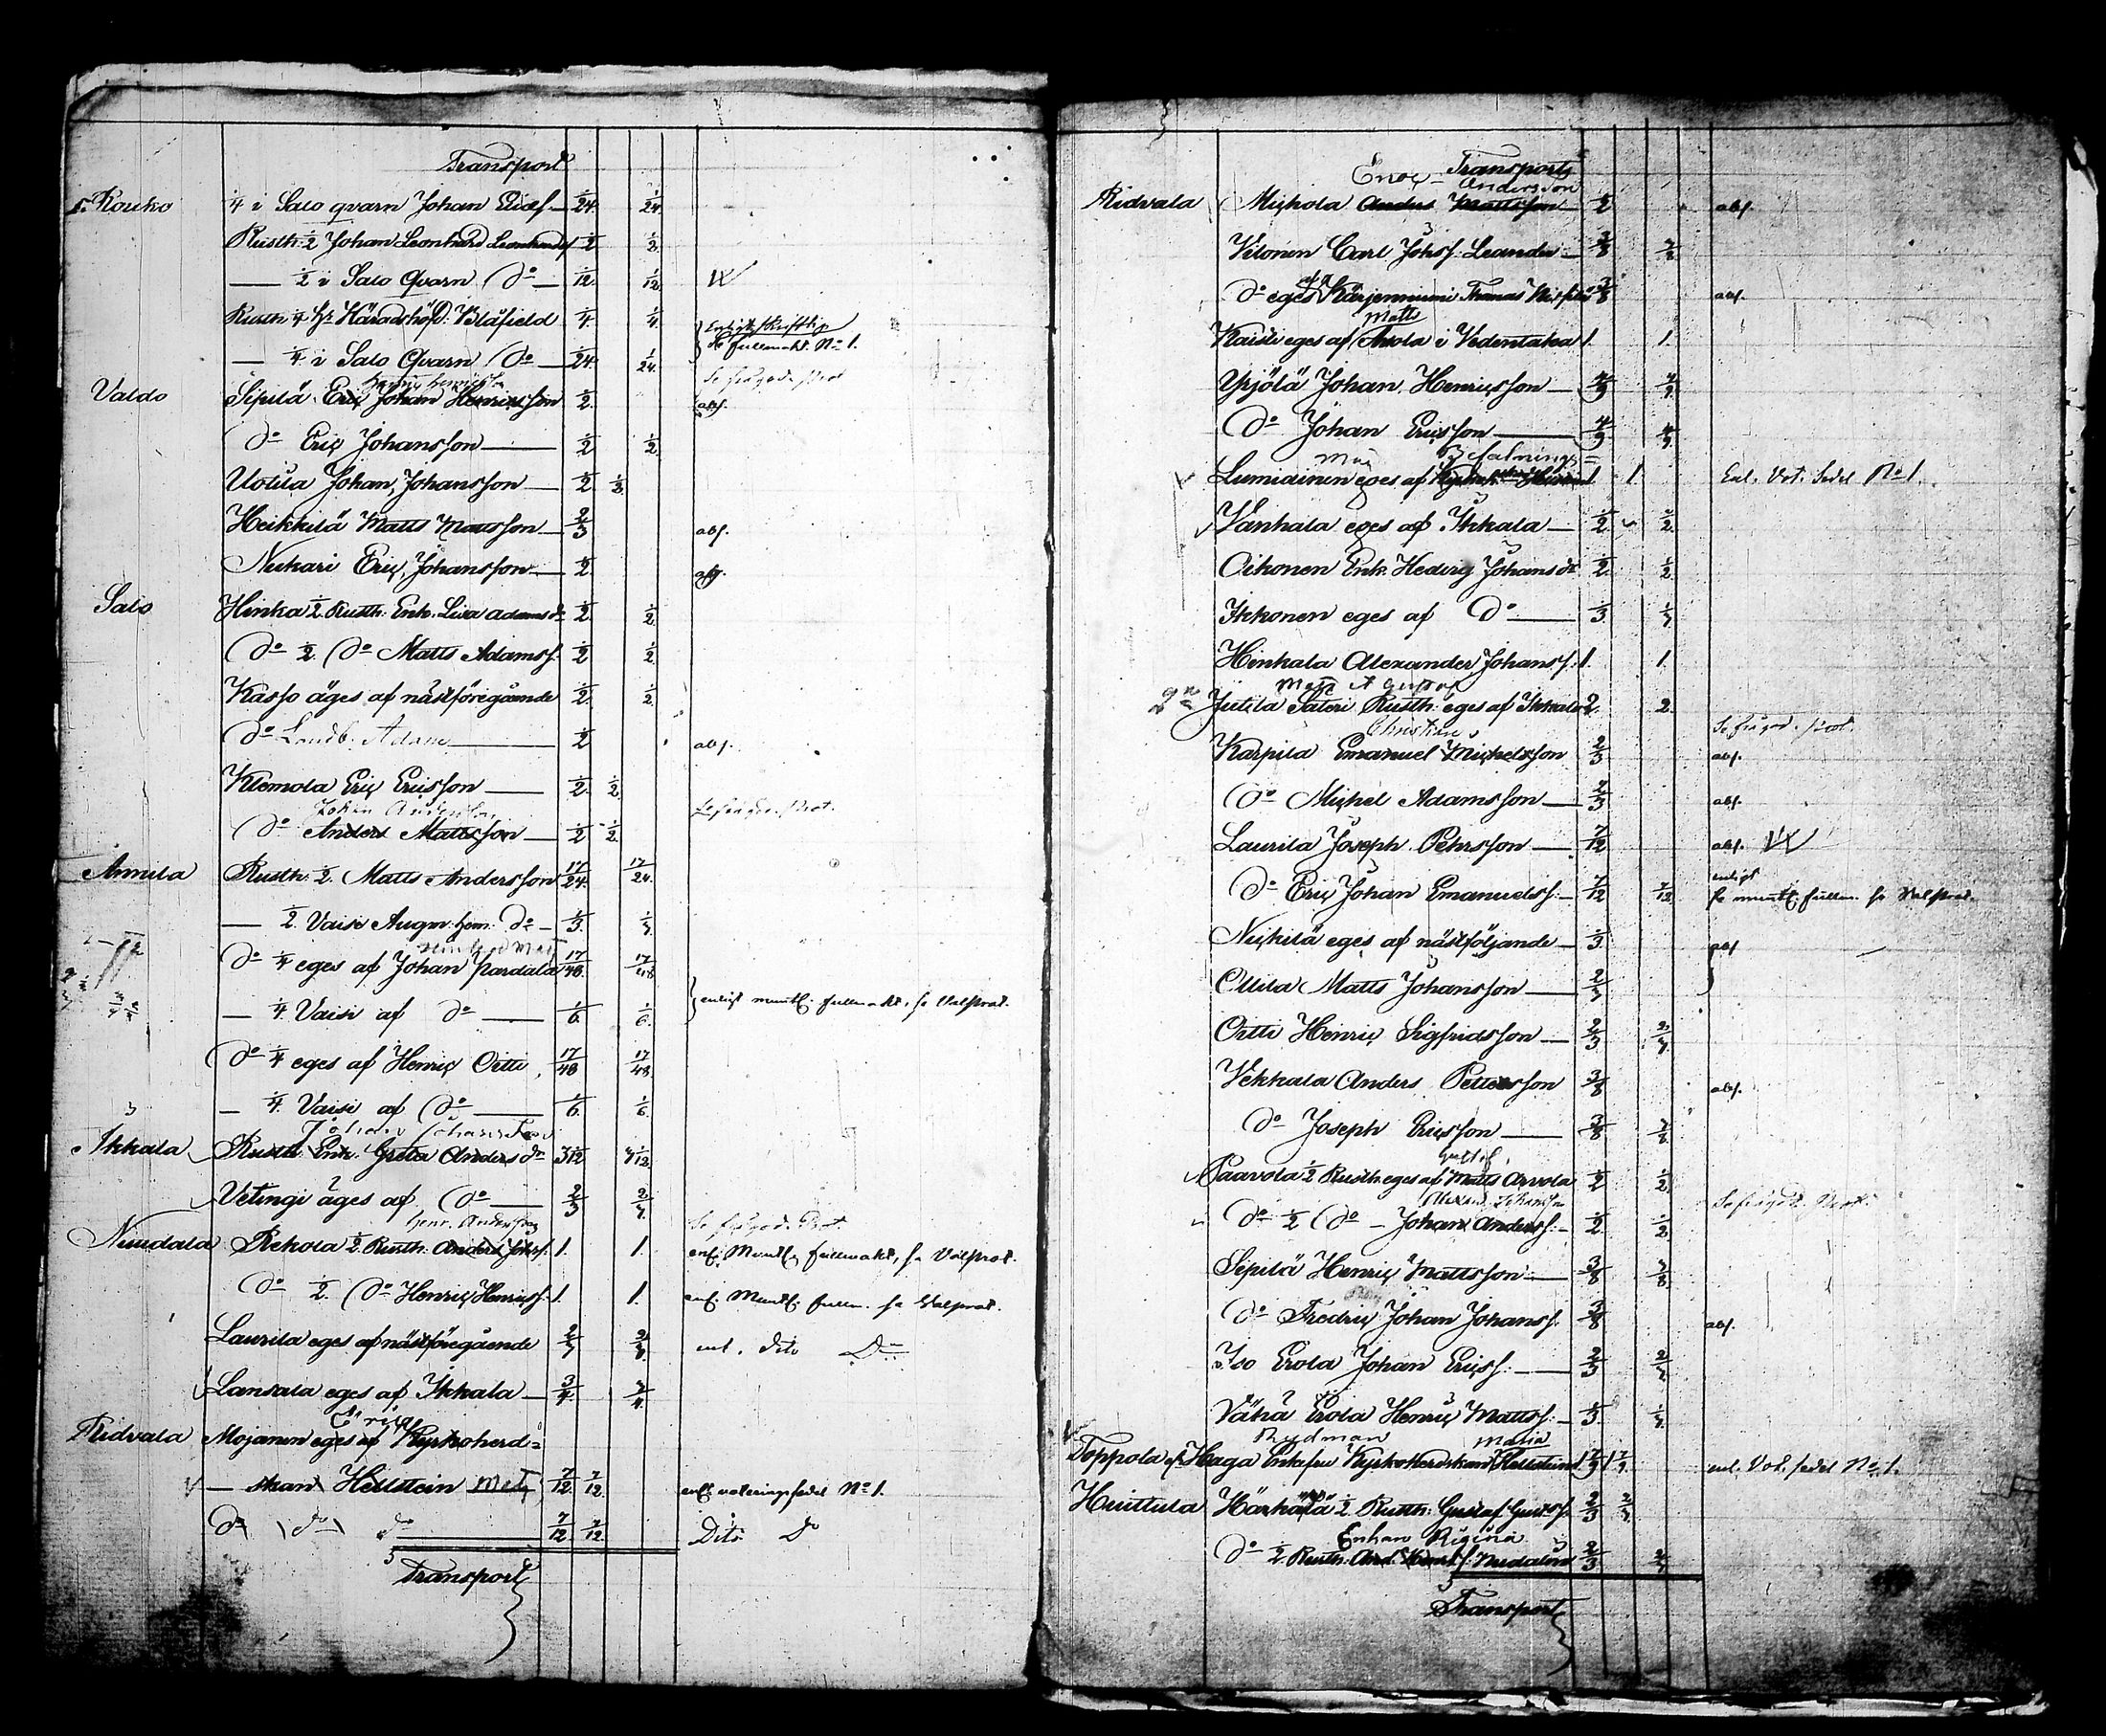 Transport
Kouko 1/4 i Salo qvarn Johan 1/24 1/24
Rusth: 1/2 Johan Leonhard 1/2 1/2
— 1/2 i Salo Qvarn Do — 1/12 1/12
Rusth: 1/4 Hr Häradshöfd: Blåfield 1/4 1/4
fullmakt No 1.
— 1/4 i Salo Qvarn Do — 1/24 1/24
Valdo Sipilä Eric Johan Henricsson 1/2 abs.
Do Eric Johansson — 1/2 1/2
Uotila Johan Johansson — 1/2 1/2
Heikkilä Matts Mattsson — 2/3 abs.
Nuhari Eric Johansson — 1/2
Salo Hinka 1/2 Rusth: Enk: Lisa Adams dr 1/2 1/2
Do 1/2 Do Matts Adamss: 1/2 1/2
Kasso äges af nästföregående 1/2 1/2
Do Landb. Adam — 1/2 abs.
Klemola Eric Ericsson — 1/2 1/2
Johan Andersson
Do Anders Mattsson — 1/2 1/2
Annila Rusth: 1/2 Matts Andersson 17/24 17/24
— 1/2 Vaisi Augm: hem: Do — 1/3 1/3
Do 1/4 eges af Johan Pardala 17/48 17/48
— 1/4 Vaisi af Do — 1/6 1/6 enligt muntl. fullmakt, se Valprot.
Do 1/4 eges af Henric Ortti 17/48 17/48
— 1/4 Vaisi af Do — 1/6 1/6
Johan Johansson
Ikkala Rusth: Enk: Greta Anders dr 3 1/12 3 1/12
Vetingi äges af Do — 2/3 2/3
Henr. Andersson
Nuudala Rekola 1/2 Rusth: Anders Johss: 1. 1. enl. Muntl. fullmakt, se Valprot.
Do 1/2 Do Henric Henricss: 1. 1. enl. Muntl. fullm. se Valprot.
Laurila eges af nästföregående 2/3 2/3 enl. dito Do
Lansala eges af Ikkala — 3/4 3/4
Ridvala Mojanen eges af Kyrkoherd=
— skan Hellstein 7/12 7/12 enl. voteringssedel No 1.
Do Do Do 7/12 7/12 Dito Do
Transport
Transport
Eric Andersson
Ridvala Mickola Anders Mattsson — 1/2 abs.
Vilonen Carl Johss: Leander — 3/8 3/8
Do eges af Kärjenniemi Thomas 3/8 abs.
Matts
Kaisti eges af Anola i Vedentaka 1. 1.
Yrjölä Johan Henricsson — 4/9 4/9
Do Johan Ericsson — 4/9 4/9
Befalnings=
Lumiainen eges af 1. 1 Enl. Vot. Sedel No 1.
Vanhala eges af Ikkala — 1/2 1/2
Oikonen Enk: Hedvig Johans dr 1/2 1/2
Ikkonen eges af Do — 1/3 1/3
Hinkala Alexander Johanss: 1. 1.
Jutila Säteri Rusth: eges af Ikkala 2. 2.
Karpila Emanuel Mickelsson 2/3 abs.
Do Mickel Adamsson — 2/3 abs.
Laurila Joseph Pehrsson — 7/12 abs.
enligt
Do Eric Johan Emanuelss: — 7/12 7/12 muntl. fullm. se Valprot.
Nickilä eges af nästföljande — 1/3 abs
Ollila Matts Johansson — 2/3
Ortti Henric Sigfridsson — 2/3 2/3
Vekkala Anders Pettersson 3/8 abs.
Do Joseph Ericsson — 3/8 3/8
Gustaf
Paavola 1/2 Rusth: eges af Matts Arvola 1/2 1/2
Alexand. Johansson
Do 1/2 Do — Johan Anderss: — 1/2 1/2
Sipilä Henric Mattsson — 3/8 3/8
Do Fredric Johan Johanss: 3/8 abs.
Iso Erola Johan Ericss: — 2/3 2/3
Vähä Erola Henric Mattss: — 1/3 1/3
Rydman Maria
Toppola Haga Enkefru Kyrkoherdskan Hellstein enl. Vot. sedel No 1.
Huittula Härkälä 1/2 Rusth: Gustaf Gusts: 2/3 2/3
Enkan Regina
Do 1/2 Rusth: 2/3 2/3
Transport